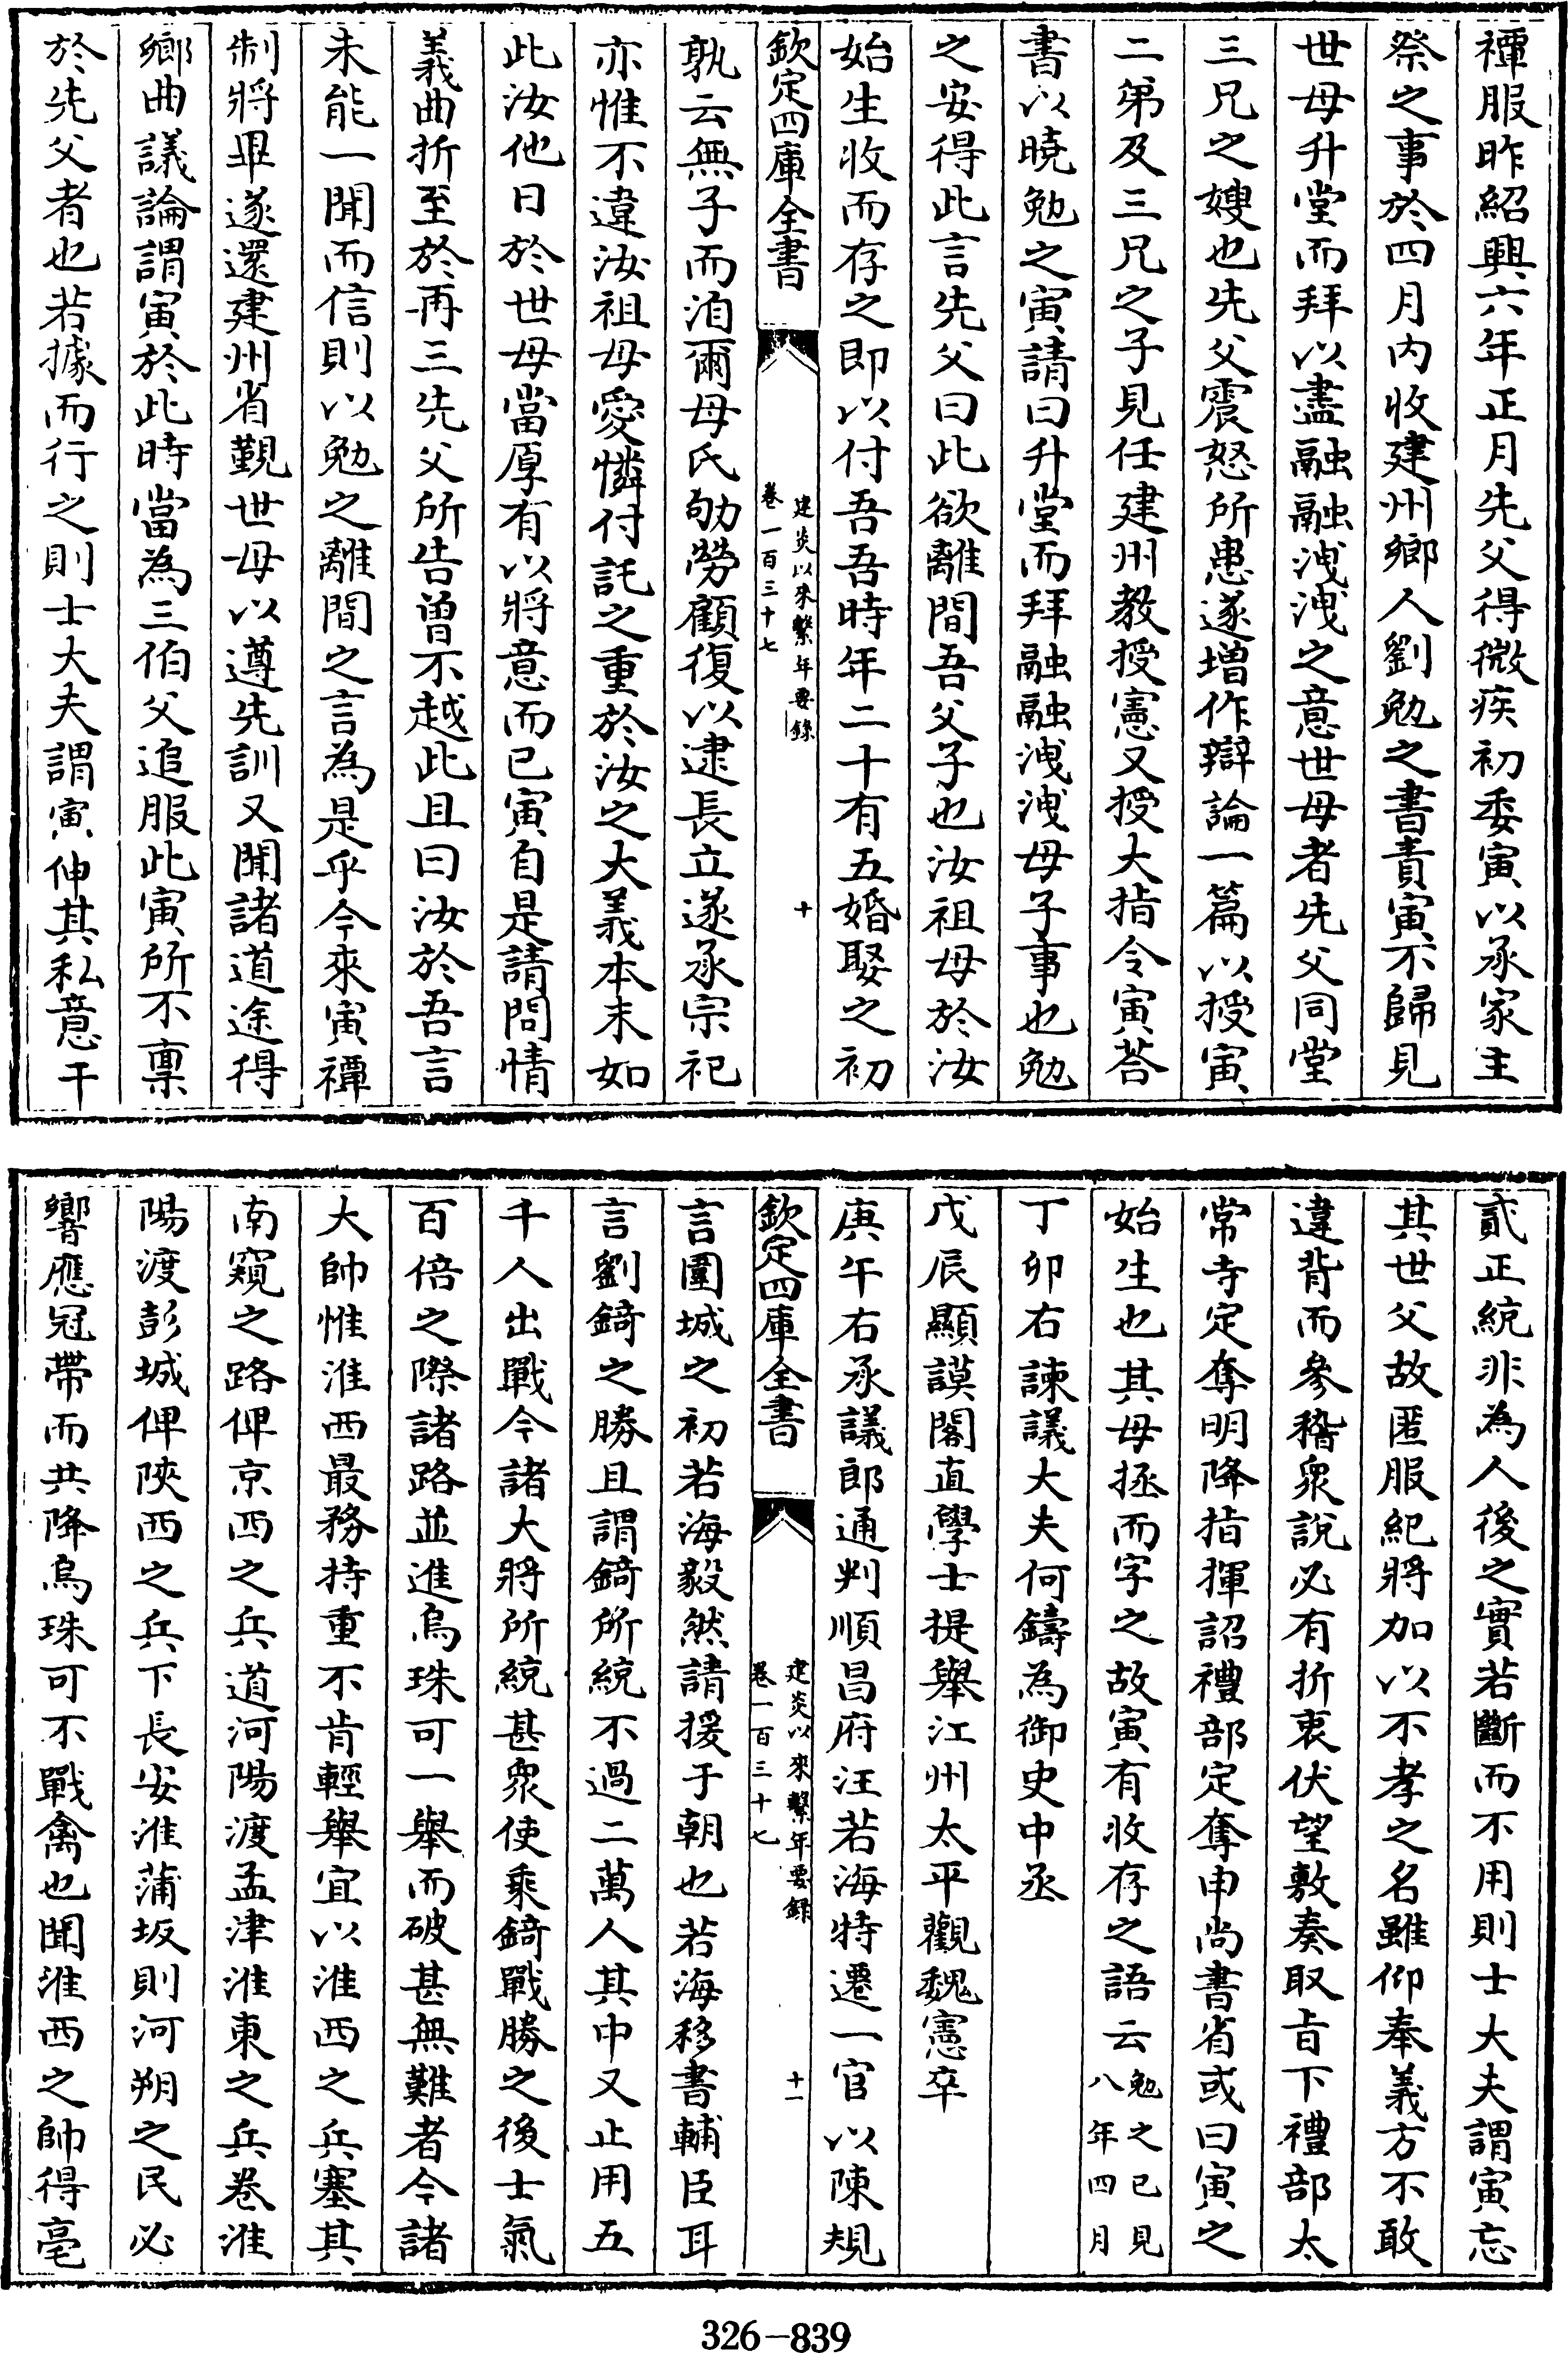 禫服昨紹興六年正月先父得微疾初委寅以承家主
祭之事於四月內收建州鄉人劉勉之書責寅不歸見
世母升堂而拜以盡融融洩洩之意世母者先父同堂
三兄之嫂也先父震怒所患遂增作辯論一篇以授寅
二弟及三兄之子見任建州教授憲又授大指令寅荅
書以曉勉之寅請曰升堂而拜融融洩洩母子事也勉
之安得此言先父曰此欲離間吾父子也汝祖母於汝
始生收而存之即以付吾吾時年二十有五婚娶之初
欽定四庫全書
建炎以來繫年要錄
卷一百三十七
十
孰云無子而洎爾母氏劬勞顧復以逮長立遂承宗祀
亦惟不違汝祖母愛憐付託之重於汝之大義本末如
此汝他日於世母當厚有以將意而已寅自是請問情
義曲折至於再三先父所告曾不越此且曰汝於吾言
未能一聞而信則以勉之離間之言為是乎今來寅禫
制將畢遂還建州省覲世母以遵先訓又聞諸道途得
鄉曲議論謂寅於此時當為三伯父追服此寅所不禀
於先父者也若據而行之則士大夫謂寅伸其私意干
貳正統非為人後之實若斷而不用則士大夫謂寅忘
其世父故匿服紀將加以不孝之名雖仰奉義方不敢
違背而參稽衆說必有折衷伏望敷奏取旨下禮部太
常寺定奪明降指揮詔禮部定奪申尚書省或曰寅之
始生也其母拯而字之故寅有收存之語云勉之已見
八年四月
丁卯右諫議大夫何鑄為御史中丞
戊辰顯謨閣直學士提舉江州太平觀魏憲卒
庚午右承議郎通判順昌府汪若海特遷一官以陳規
欽定四庫全書
建炎以來繫年要錄
卷一百三十七
十一
言圍城之初若海毅然請援于朝也若海移書輔臣耳
言劉錡之勝且謂錡所統不過二萬人其中又止用五
千人出戰今諸大將所統甚衆使乘錡戰勝之後士氣
百倍之際諸路並進烏珠可一舉而破甚無難者今諸
大帥惟淮西最務持重不肯輕舉宜以淮西之兵塞其
南窺之路俾京西之兵道河陽渡孟津淮東之兵卷淮
陽渡彭城俾陝西之兵下長安淮蒲坂則河朔之民必
響應冠帶而共降烏珠可不戰禽也聞淮西之帥得亳
326-839